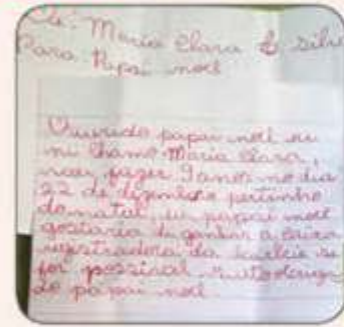 De: Maria Clara S. Silva
Para: Papai noel
Querido papai noel eu
mi chamo Maria Clara,
vou fazer 9 anos no dia
22 de dezembro pertinho
do natal, eu papai noel
gostaria de ganhar a caixa
registradora da barbie se
for possivel. muito obrigada
papai noel.